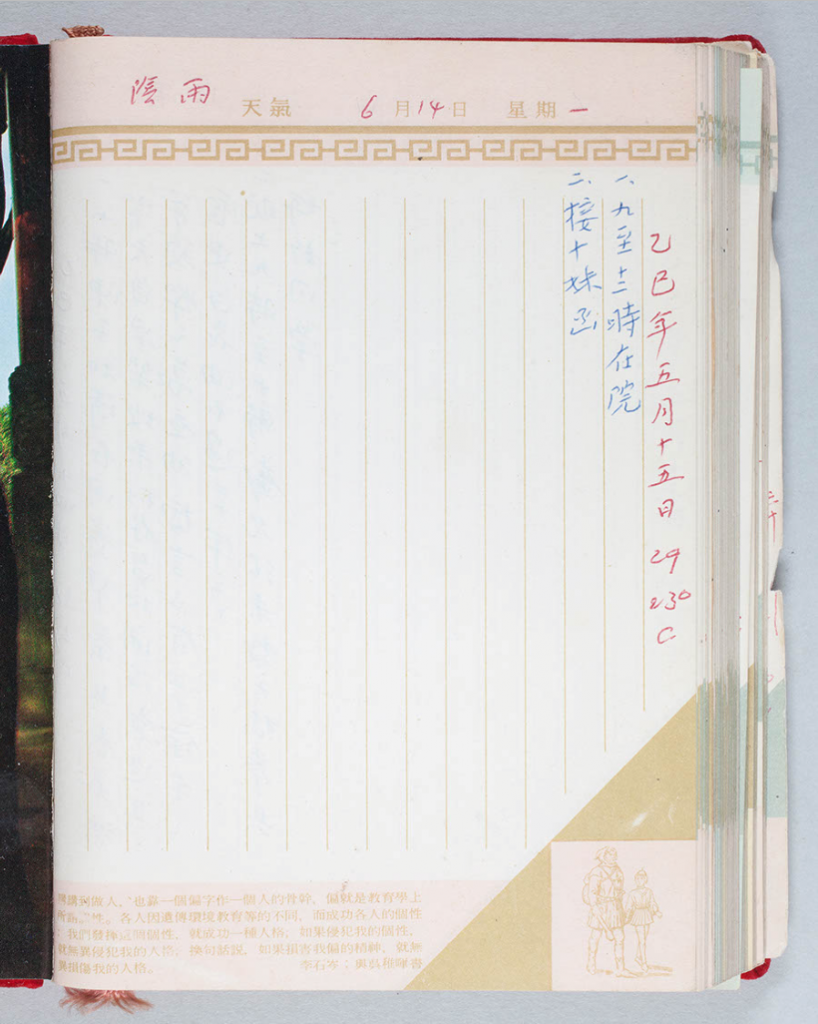 陰雨 天氣 6月14日 星期一
乙巳年五月十五日 29 230 C
一、九至十二時在院
二、接十妹函
做人，也靠一個偏字作一個人的骨幹，偏就是教育學上
所謂個性。各人因遺傳環境教育等的不同，而成功各人的個性
我們發揮這個個性，就成功一種人格；如果侵犯我的個性，
就無異侵犯我的人格；換句話說，如果損害我偏的精神，就無
異損傷我的人格。 李石岑：與吳稚暉書